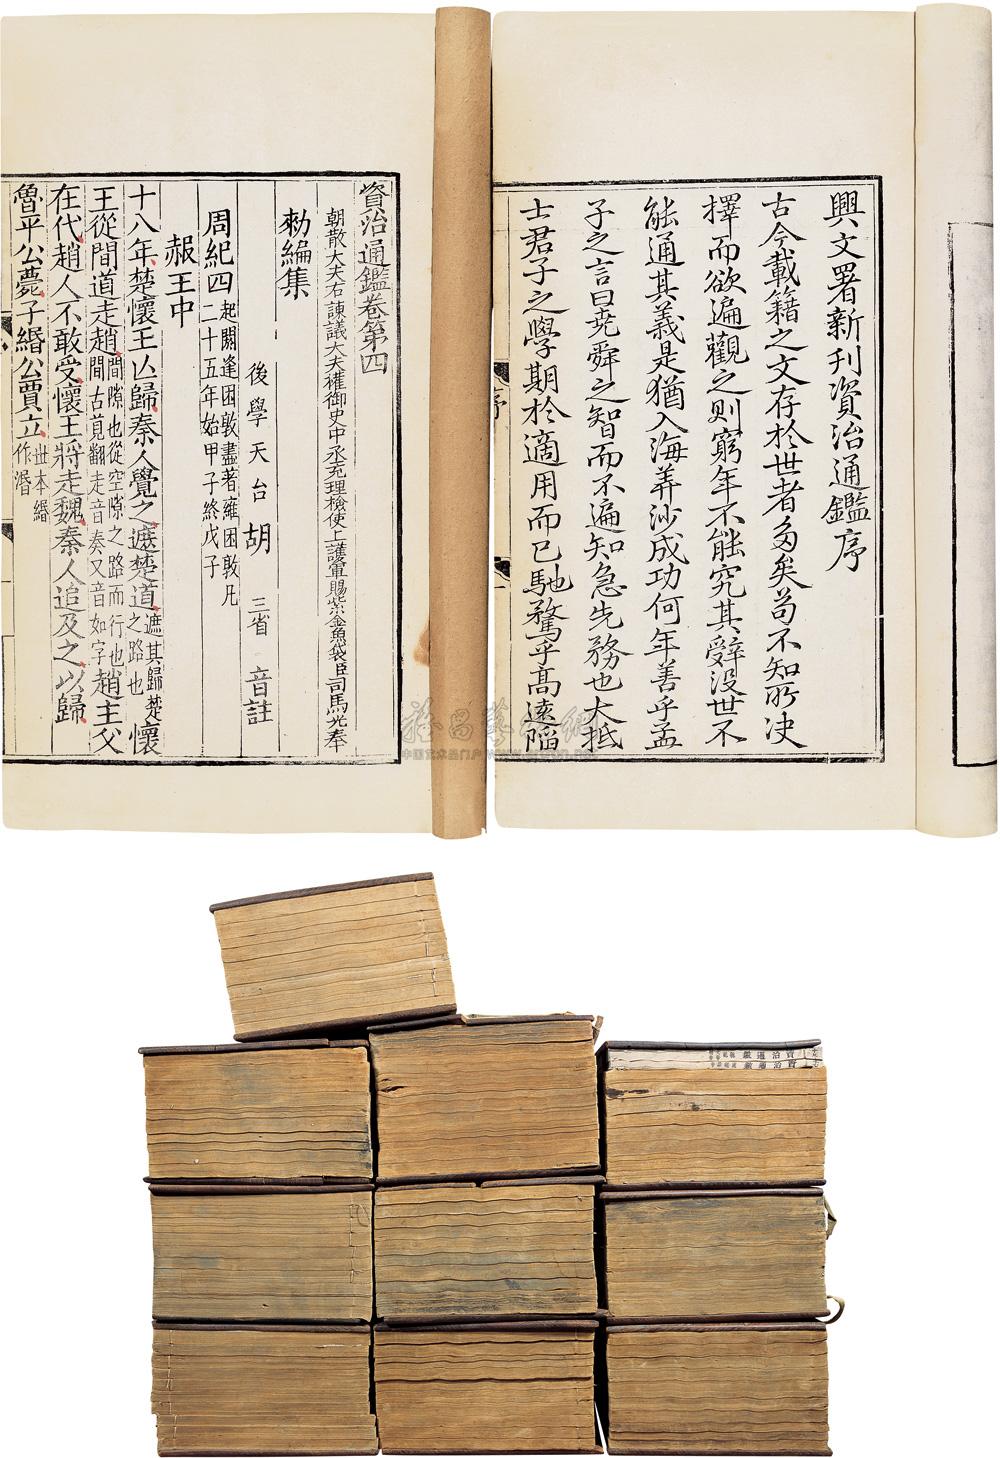 興文署新刊資治通鑑序
古今載籍之文存於世者多矣苟不知所决
擇而欲遍觀之則窮年不能究其辭没世不
能通其義是猶入海筭沙成功何年善乎孟
子之言曰堯舜之智而不遍知急先務也大抵
士君子之學期於適用而已馳騖乎高遠陷
序
資治通鑑卷第四
朝散大夫右諫議大夫權御史中丞充理檢使上護軍賜紫金魚袋臣司馬光奉
勑編集
後學天台胡三省音註
周紀四起閼逢困敦盡著雍困敦凡
二十五年始甲子終戊子
赧王中
十八年楚懷王亡歸秦人覺之遮楚道遮其歸楚
之路也懷
王從間道走趙間隙也從空隙之路而行也
間古莧翻走音奏又音如字趙主父
在代趙人不敢受懷王將走魏秦人追及之以歸
魯平公薨子緡公賈立世本緡
作湣
資治通鑑
資治通鑑